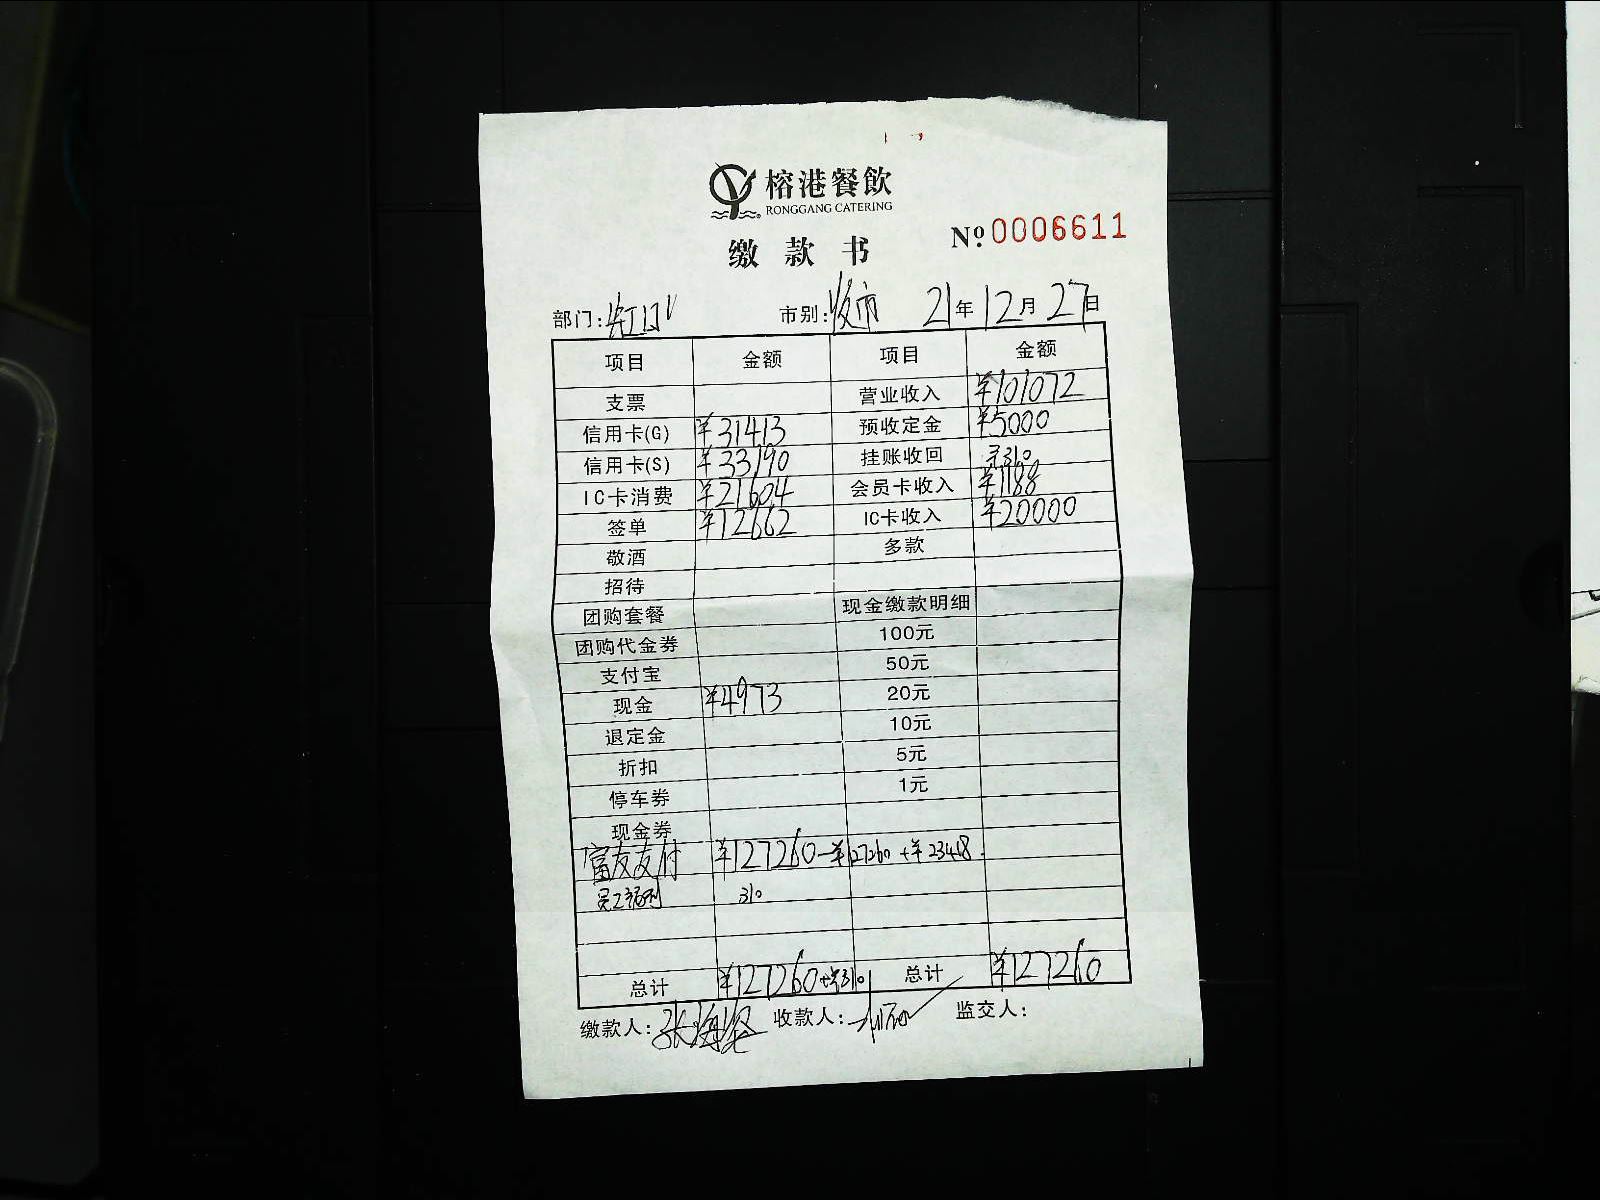 榕港餐飲
RONGGANG CATERING
缴款书
№ 0006611
部门: 虹口 市别: 夜市 21年12月27日
项目 金额 项目 金额
支票 营业收入 ¥101072
信用卡(G) ¥31413 预收定金 ¥5000
信用卡(S) ¥33190 挂账收回 ¥310
IC卡消费 ¥21604 会员卡收入 ¥1188
签单 ¥12662 IC卡收入 ¥20000
敬酒 多款
招待
团购套餐 现金缴款明细
团购代金券 100元
支付宝 50元
现金 ¥4973 20元
退定金 10元
折扣 5元
停车券 1元
现金券
富友支付 ¥127260-¥127260+¥23418
员工福利 310
总计 ¥127260+¥310 总计 ¥127260
缴款人: 张海 收款人: 监交人: